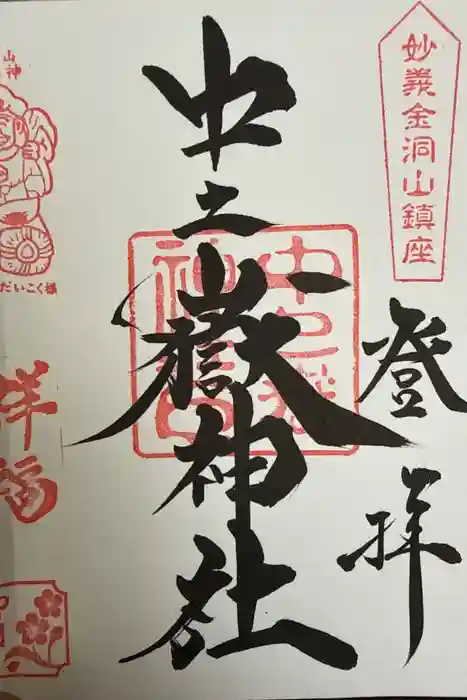 妙義金洞山鎮座
登拝
中之嶽神社
中之嶽神社印
山神
だいこく様
祥福